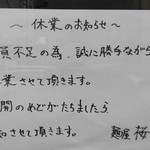 ～休業のお知らせ～
員不足の為、誠に勝手ながら
業させて頂きます。
開のめどがたちましたら、
知させて頂きます。
麺屋 桜